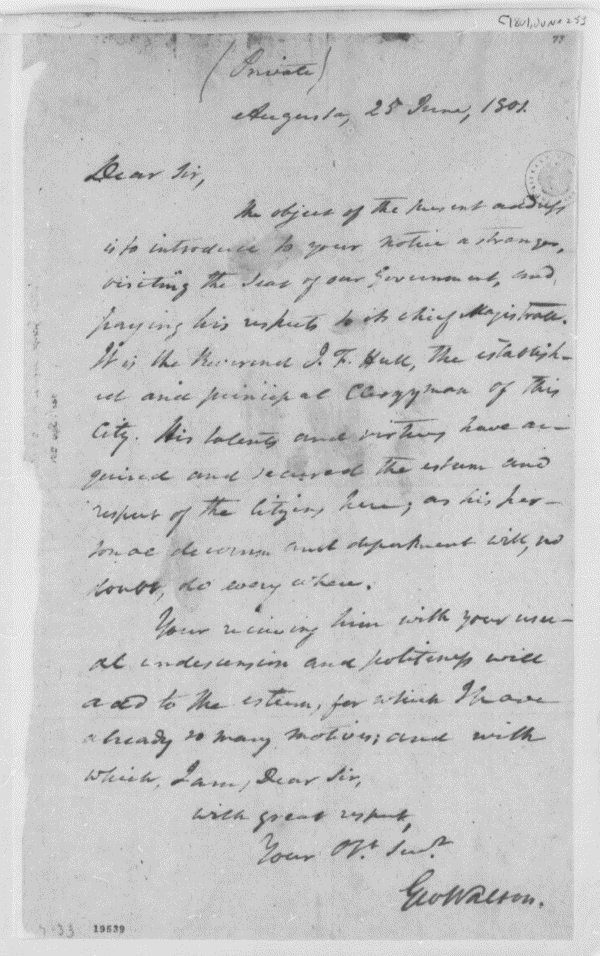 (Private)
Augusta, 25 June, 1801.
Dear Sir,
the object of the present address
is to introduce to your notice a stranger,
visiting the Seat of our Government, and
paying his respects to its chief Magistrate.
It is the Reverend J. F. Hull, the establish-
ed and principal Clergyman of this
City. His talents and virtues have ac-
quired and secured the esteem and
respect of the Citizens here; as his per-
sonal decorum and deportment will, no
doubt, do every where.
Your receiving him with your usu-
al condescension and politeness will
add to the esteem, for which I have
already so many motives; and with
which, I am, Dear Sir,
with great respect,
Your Obt. Servt.
Geo Walton.
19639